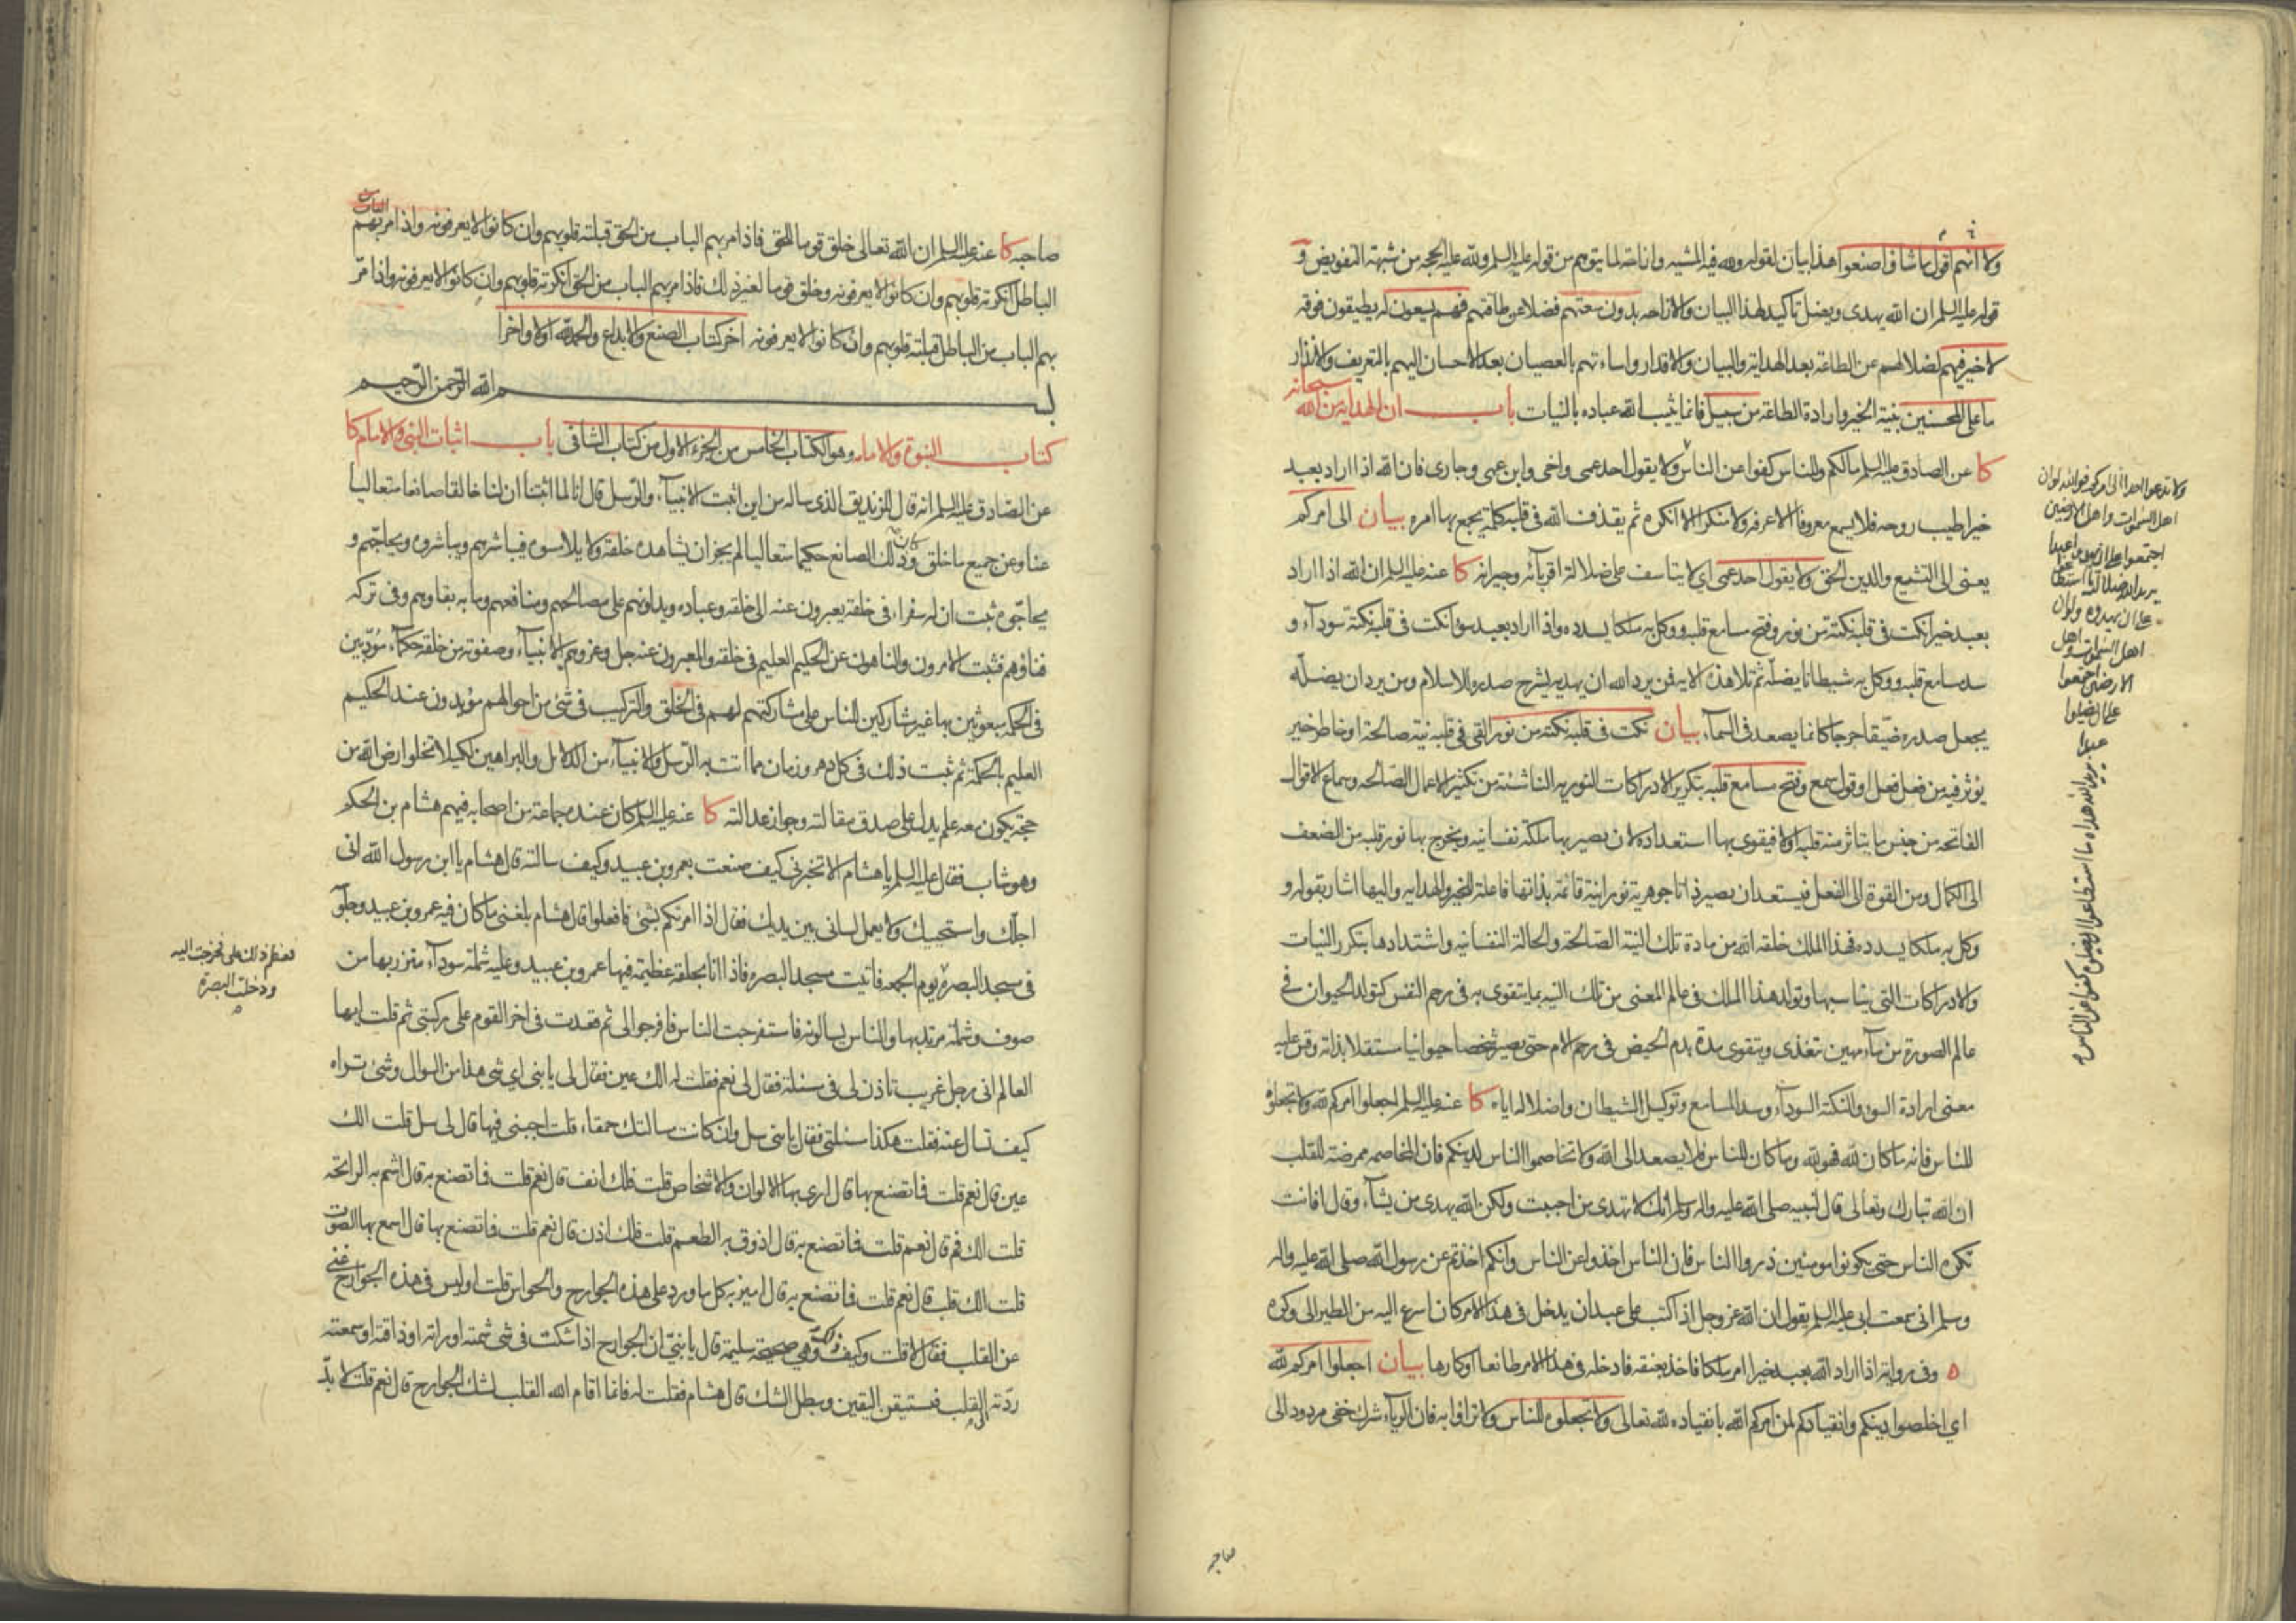 ولا انهم اقول ما شاؤا صنعوا هذا بيان لقوله ولله فيه المشيه وازاحة لما يتوهم من قوله عليه السلم ولله عليه الحجه من شبهة التفويض و
قوله عليه السلم ان الله يهدى ويضل تاكيد لهذا البيان والازاحه بدون سعتهم فضلا عن طاقتهم فهم يسعون له يطيقون فوقه
لا خير فيهم لضلالهم عن الطاعة بعد الهداية والبيان والاقدار واساءتهم بالعصيان بعد الاحسان اليهم بالتعريف والانذار
ما على المحسنين بنية الخير وارادة الطاعة من سبيل فانما يثيب الله عباده بالنيات باب ان الهداية من الله سبحانه
كا عن الصادق عليه السلم مالكم وللناس كفوا عن الناس ولا يقول احد عمى واخى وابن عمى وجارى فان الله اذا اراد بعبد
خيرا طيب روحه فلا يسمع معروفا الا عرفه ولا منكرا الا انكره ثم يقذف الله فى قلبه كلمة يجمع بها امره بيان الى امركم
يعنى الى التشيع والدين الحق ولا يقول احد عمى اي لا يتاسف على ضلالة اقربائه وجيرانه كا عنه عليه السلم ان الله اذا اراد
بعبد خيرا نكت فى قلبه نكتة من نور وفتح مسامع قلبه ووكل به ملكا يسدده واذا اراد بعبد سوءا نكت فى قلبه نكتة سودآء و
سد مسامع قلبه ووكل به شيطانا يضله ثم تلا هذه الايه فمن يرد الله ان يهديه يشرح صدره للاسلام ومن يرد ان يضله
يجعل صدره ضيقا حرجا كانما يصعد فى السمآء بيان نكت فى قلبه نكتة من نور القى فى قلبه نية صالحة او خاطر خير
يؤثر فيه من فعل فعل او قول سمع وفتح مسامع قلبه بتكرير الادراكات النوريه الناشئة من تكثير الاعمال الصالحه وسماع الاقوال
الفاتحه من جنس ما يتاثر منه قلبه اولا فيقوى بها استعداده لان يصير بها ملكة نفسانيه ويخرج بها نور قلبه من الضعف
الى الكمال ومن القوة الى الفعل فيستعد ان يصير ذاتا جوهرية نورانية قائمة بذاتها فاعلة للخير والهدايه واليها اشار بقوله و
وكل به ملكا يسدده فهذا الملك خلقه الله من مادة تلك النية الصالحة والحالة النفسانيه واشتدادها بتكرر النيات
والادراكات التى يناسبها وتولد هذا الملك فى عالم المعنى من تلك النيه بما يتقوى به فى رحم النفس كتولد الحيوان فى
عالم الصورة من مآء مهين تغذى ويتقوى مدة بدم الحيض فى رحم الام حتى يصير شخصا حيوانيا مستقلا بذاته وقس عليه
معنى ارادة السوء والنكتة السودآء وسد المسامع وتوكيل الشيطان واضلاله اياه كا عنه عليه السلم اجعلوا امركم لله ولا تجعلوه
للناس فانه ما كان لله فهو لله وما كان للناس فلا يصعد الى الله ولا تخاصموا الناس لدينكم فان المخاصمه ممرضة للقلب
ان الله تبارك وتعالى قال لنبيه صلى الله عليه واله وسلم انك لا تهدى من احببت ولكن الله يهدى من يشآء وقال افانت
تكره الناس حتى يكونوا مومنين ذروا الناس فان الناس اخذوا عن الناس وانكم اخذتم عن رسول الله صلى الله عليه واله
وسلم انى سمعت ابى عليه السلم يقول ان الله عز وجل اذا كتب على عبد ان يدخل فى هذا الامر كان اسرع اليه من الطير الى وكره
ه وفى رواية اذا اراد الله بعبد خيرا امر ملكا فاخذ بعنقه فادخله فى هذا الامر طائعا او كارها بيان اجعلوا امركم لله
اي اخلصوا دينكم وانقيادكم لمن امركم الله بانقياده لله تعالى ولا تجعلوه للناس ولا تراؤا به فان الريآء شرك خفى مردود الى
ولا تدعوا احدا الى امركم فوالله لو ان
اهل السموات واهل الارضين
اجتمعوا على ان يهدوا عبدا
يريد الله ضلالته ما استطاعوا
على ان يهدوه ولو ان
اهل السموات واهل
الارضين اجتمعوا
على ان يضلوا
عبدا
يريد الله هداه ما استطاعوا ان يضلوه كفوا عن الناس
صاحبه
صاحبه كا عنه عليه السلم ان الله تعالى خلق قوما للحق فاذا مر بهم الباب من الحق قبلته قلوبهم وان كانوا لا يعرفونه واذا مر بهم الباب من
الباطل انكرته قلوبهم وان كانوا لا يعرفونه وخلق قوما لغير ذلك فاذا مر بهم الباب من الحق انكرته قلوبهم وان كانوا لا يعرفونه واذا مر
بهم الباب من الباطل قبلته قلوبهم وان كانوا لا يعرفونه اخر كتاب الصنع والابداع والحمد لله اولا واخرا
بسم الله الرحمن الرحيم
كتاب النبوة والامامه وهو الكتاب الخامس من الجزء الاول من كتاب الشافى باب اثبات النبى والامام كا
عن الصادق عليه السلم انه قال للزنديق الذى ساله من اين اثبت الانبيآء والرسل قال انا لما اثبتنا ان لنا خالقا صانعا متعاليا
عنا وعن جميع ما خلق وكان ذلك الصانع حكيما متعاليا لم يجز ان يشاهده خلقه ولا يلامسوه فيباشرهم ويباشروه ويحاجهم و
يحاجوه ثبت ان له سفراء فى خلقه يعبرون عنه الى خلقه وعباده ويدلونهم على مصالحهم ومنافعهم وما به بقاوهم وفى تركه
فناؤهم فثبت الامرون والناهون عن الحكيم العليم فى خلقه والمعبرون عنه جل وعز وهم الانبيآء وصفوته من خلقه حكمآء مؤدبين
فى الحكمه مبعوثين بها غير مشاركين للناس على مشاركتهم لهم فى الخلق والتركيب فى شئ من احوالهم مؤيدون عند الحكيم
العليم بالحكمة ثم ثبت ذلك فى كل دهر وزمان مما اتت به الرسل والانبيآء من الدلائل والبراهين لكيلا تخلوا ارض الله من
حجة يكون معه علم يدل على صدق مقالته وجواز عدالته كا عنه عليه السلم كان عنده جماعة من اصحابه فيهم هشام بن الحكم
وهو شاب فقال عليه السلم يا هشام الا تخبرنى كيف صنعت بعمرو بن عبيد وكيف سالته قال هشام يا ابن رسول الله انى
اجلك واستحييك ولا يعمل لسانى بين يديك فقال اذا امرتكم بشئ فافعلوا قال هشام بلغنى ما كان فيه عمرو بن عبيد وجلوسه
فى مسجد البصره يوم الجمعه فاتيت مسجد البصره فاذا انا بحلقة عظيمة فيها عمرو بن عبيد وعليه شملة سودآء متزر بها من
صوف وشملة مرتد بها والناس يسالونه فاستفرجت الناس فافرجوا لى ثم قعدت فى اخر القوم على ركبتى ثم قلت ايها
العالم انى رجل غريب تاذن لى فى مسئلة فقال لى نعم فقلت له الك عين فقال لى يا بنى اي شئ هذا من السوال وشئ تراه
كيف تسال عنه فقلت هكذا مسئلتى فقال يا بنى سل وان كانت مسالتك حمقاء قلت اجبنى فيها قال لى سل قلت الك
عين قال نعم قلت فما تصنع بها قال ارى بها الالوان والاشخاص قلت فلك انف قال نعم قلت فما تصنع به قال اشم به الرائحه
قلت الك فم قال نعم قلت فما تصنع به قال اذوق به الطعم قلت فلك اذن قال نعم قلت فما تصنع بها قال اسمع بها الصوت
قلت الك قلب قال نعم قلت فما تصنع به قال اميز به كل ما ورد على هذه الجوارح والحواس قلت اوليس فى هذه الجوارح غنى
عن القلب فقال لا قلت وكيف ذلك وهى صحيحة سليمة قال يا بنى ان الجوارح اذا شكت فى شئ شمته او راته او ذاقته او سمعته
ردته الى القلب فتستيقن اليقين ويبطل الشك قال هشام فقلت له فانما اقام الله القلب لشك الجوارح قال نعم قلت لا بد
فعظم ذلك على فخرجت اليه
ودخلت البصرة